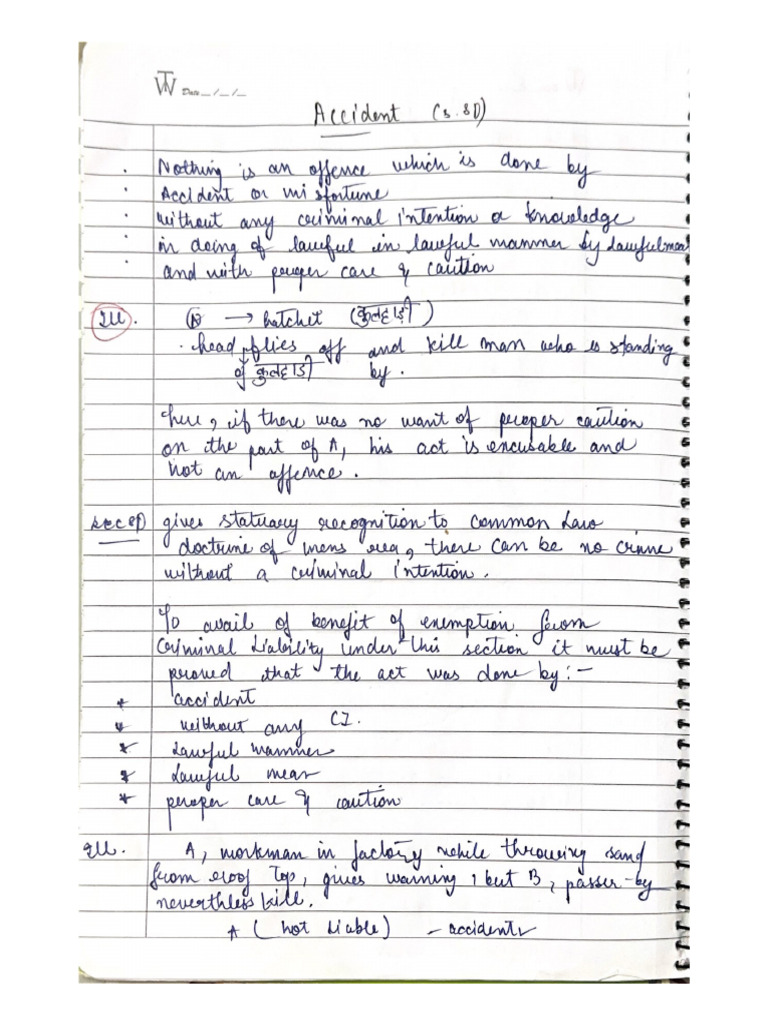 TW Date _/_/_
Accident (S. 80)
Nothing is an offence which is done by
Accident or misfortune
without any criminal intention or knowledge
in doing of lawful in lawful manner by lawful mean
and with proper care & caution
Ill. A → hatchet (कुल्हाड़ी)
head flies off and kill man who is standing
of कुल्हाड़ी by.
here, if there was no want of proper caution
on the part of A, his act is excusable and
not an offence.
gives statuary recognition to common Law
doctrine of mens rea, there can be no crime
without a criminal intention.
To avail of benefit of exemption from
Criminal Liability under this section it must be
proved that the act was done by :-
* accident
* without any CI.
* Lawful manner
* Lawful mean
* proper care & caution
Ill. A, workman in factory while throwing sand
from roof top, gives warning, but B, passer-by
nevertheless kill.
A (not Liable) - accident